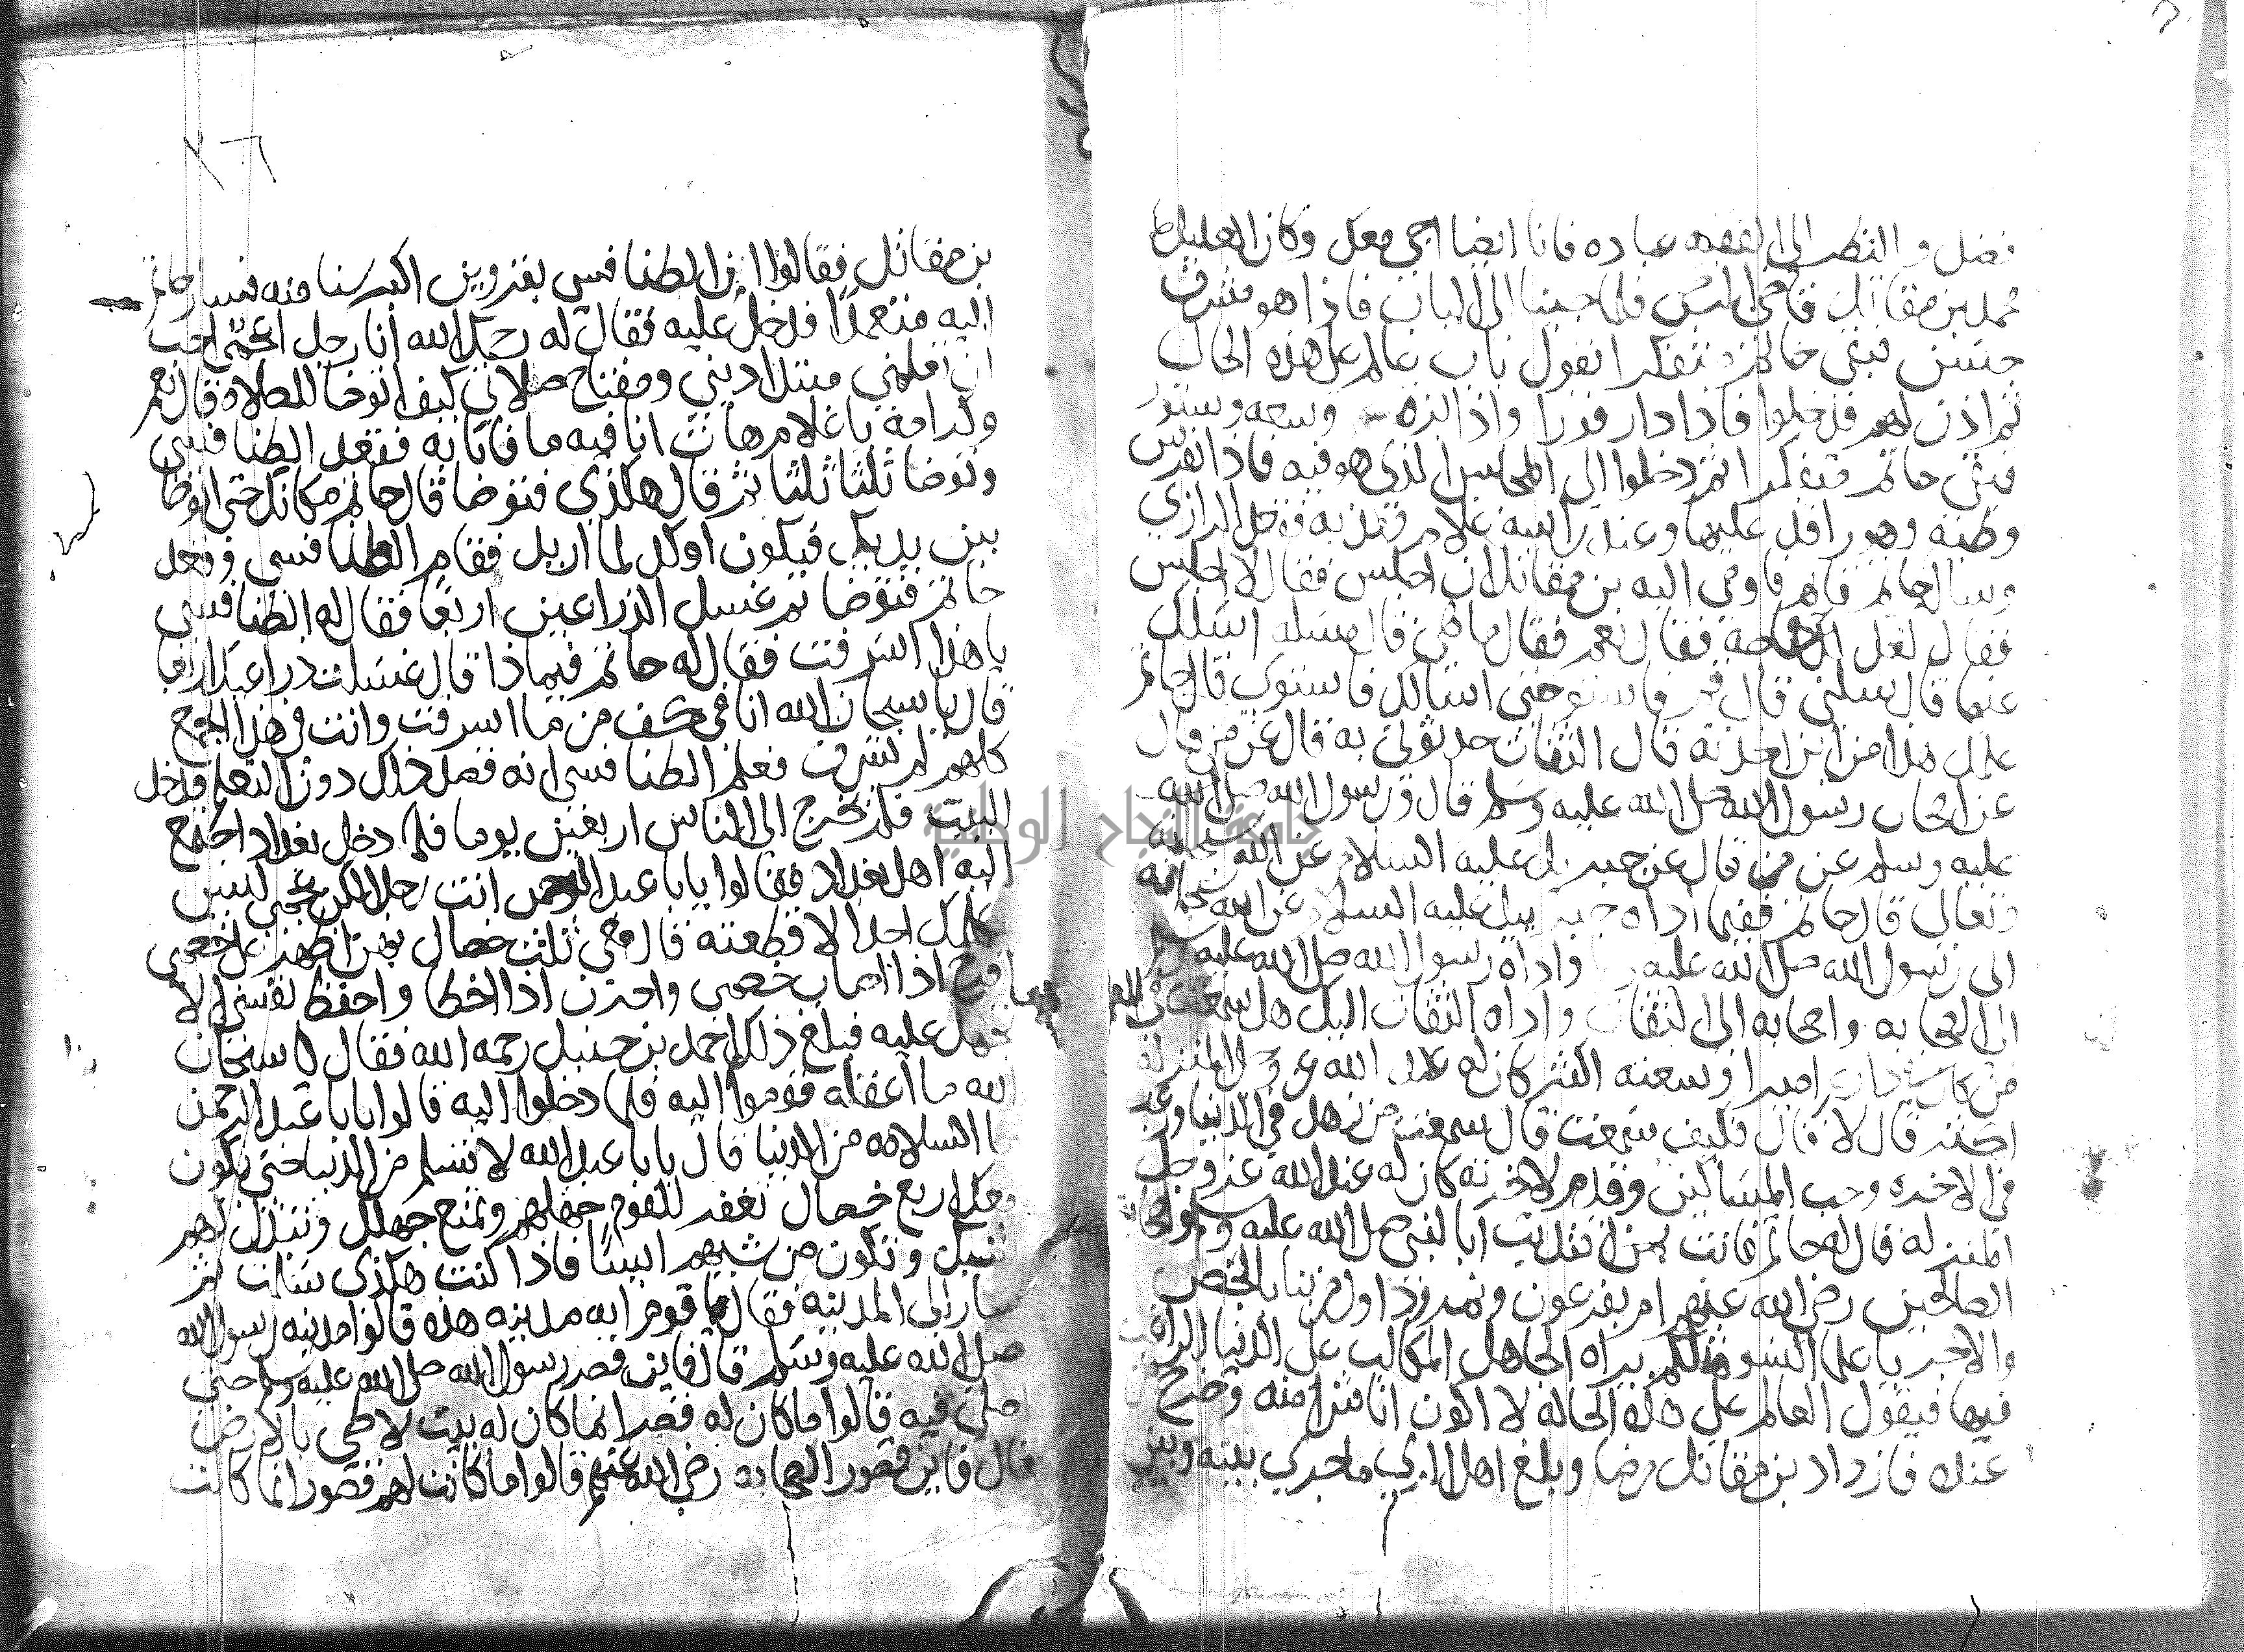 فضل والنظر الى الفقيه عباده فانا ايضا اجى معك وكان العليل
محمد بن مقاتل قاضى الرى فلما جينا الى الباب فاذا هو مشرف
حسن فبقى حاتم متفكرا يقول باب عالم على هذه الحال
ثم اذن لهم فدخلوا فاذا دار قورا واذا بزه وسعه وستور
فبقى حاتم متفكرا ثم دخلوا الى المجلس الذي هو فيه فاذا بفرش
وطئه وهو راقد عليها وعند راسه غلام وبيده مذبه فدخل الرازي
وسال حاتم قايم فاومى اليه بن مقاتل ان اجلس فقال لا اجلس
فقال لعل لك حاجة فقال نعم فقال ما هى قال مسله اسلك
عنها قال سلنى قال قم فاستو حتى اسالك فاستوى قال حاتم
علمك هذا من اين اخذته قال الثقات حدثونى به قال عن من قال
عن اصحاب رسول الله صلى الله عليه وسلم قال ورسول الله صلى الله
عليه وسلم عن من قال عن جبريل عليه السلام عن الله سبحانه
وتعالى قال حاتم ففيما اداه جبريل عليه السلام عن الله سبحانه
الى رسول الله صلى الله عليه وسلم واداه رسول الله صلى الله عليه وسلم
الى اصحابه واصحابه الى الثقات واداه الثقات اليك هل سمعت فى العلم
من كان في داره اميرا وسعته اكثر كان له عند الله عز وجل المنزلة
اكثر قال لا قال فكيف سمعت قال سمعت من زهد في الدنيا ورغب
فى الاخرة وحب المساكين وقدم لاخرته كان له عند الله عز وجل
المنزله قال له حاتم فانت بمن اقتديت ابالنبى صلى الله عليه وسلم واصحابه
الصالحين رضى الله عنهم ام بفرعون ونمرود اول من بنا بالجص
والاجر يا علما السو مثلكم يراه الجاهل المكالب على الدنيا الراغب
فيها فيقول العالم على هذه الحالة لا اكون انا شرا منه وخرج
عنده فازداد بن مقاتل مرضا وبلغ اهل الري ما جري بينه وبين
٢٦
بن مقاتل فقالوا ان الطنافسى بقزوين اكبر سنا منه فسار حاتم
اليه متعمدا فدخل عليه فقال له رحمك الله انا رجل اعجمى احب
ان تعلمني مبتدا ديني ومفتاح صلاتى كيف اتوضا للصلاة قال نعم
وكرامة يا غلام هات انا فيه ما فاتا به فقعد الطنافسى
وتوضا ثلثا ثلثا ثم قال هكذى فتوضا قال حاتم مكانك حتى اتوضا
بين يديك فيكون اوكد لما اريد فقام الطنافسى وقعد
حاتم فتوضا ثم غسل الذراعين اربعا فقال له الطنافسى
يا هذا اسرفت فقال له حاتم فيماذا قال غسلت ذراعيك اربعا
قال يا سبحان الله انا فى كف من ما اسرفت وانت فى هذا الجمع
كلهم لم تسرف فعلم الطنافسى انه قصد ذلك دون التعلم فدخل
البيت فلم يخرج الى الناس اربعين يوما فلما دخل بغداد اجتمع
اليه اهل بغداد فقالوا يابا عبد الرحمن انت رجل الكن عجمى ليس
يكلمك احد الا قطعته قال معى ثلث خصال بهن اظهر على خصمى
افرح اذا اصاب خصمى واحزن اذا اخطا واحفظ نفسى ان لا
تجهل عليه فبلغ ذلك احمد بن حنبل رحمه الله فقال سبحان
الله ما اعقله قوموا اليه فلما دخلوا اليه قالوا يابا عبد الرحمن
ما السلامه من الدنيا قال يابا عبد الله لا تسلم من الدنيا حتى يكون
معك اربع خصال تغفر للقوم جهلهم وتمنع جهلك وتبذل لهم
شيك وتكون من شيهم ايسا فاذا كنت هكذى سلمت ثم
سار الى المدينه فقال يا قوم ايه مدينه هذه قالوا مدينه رسول الله
صلى الله عليه وسلم قال فاين قصر رسول الله صلى الله عليه وسلم حتى
اصلى فيه قالوا ما كان له قصر انما كان له بيت لاطى بالارض
قال فاين قصور الصحابه رضى الله عنهم قالوا ما كانت لهم قصور انما كانت
جامعة النجاح الوطنية